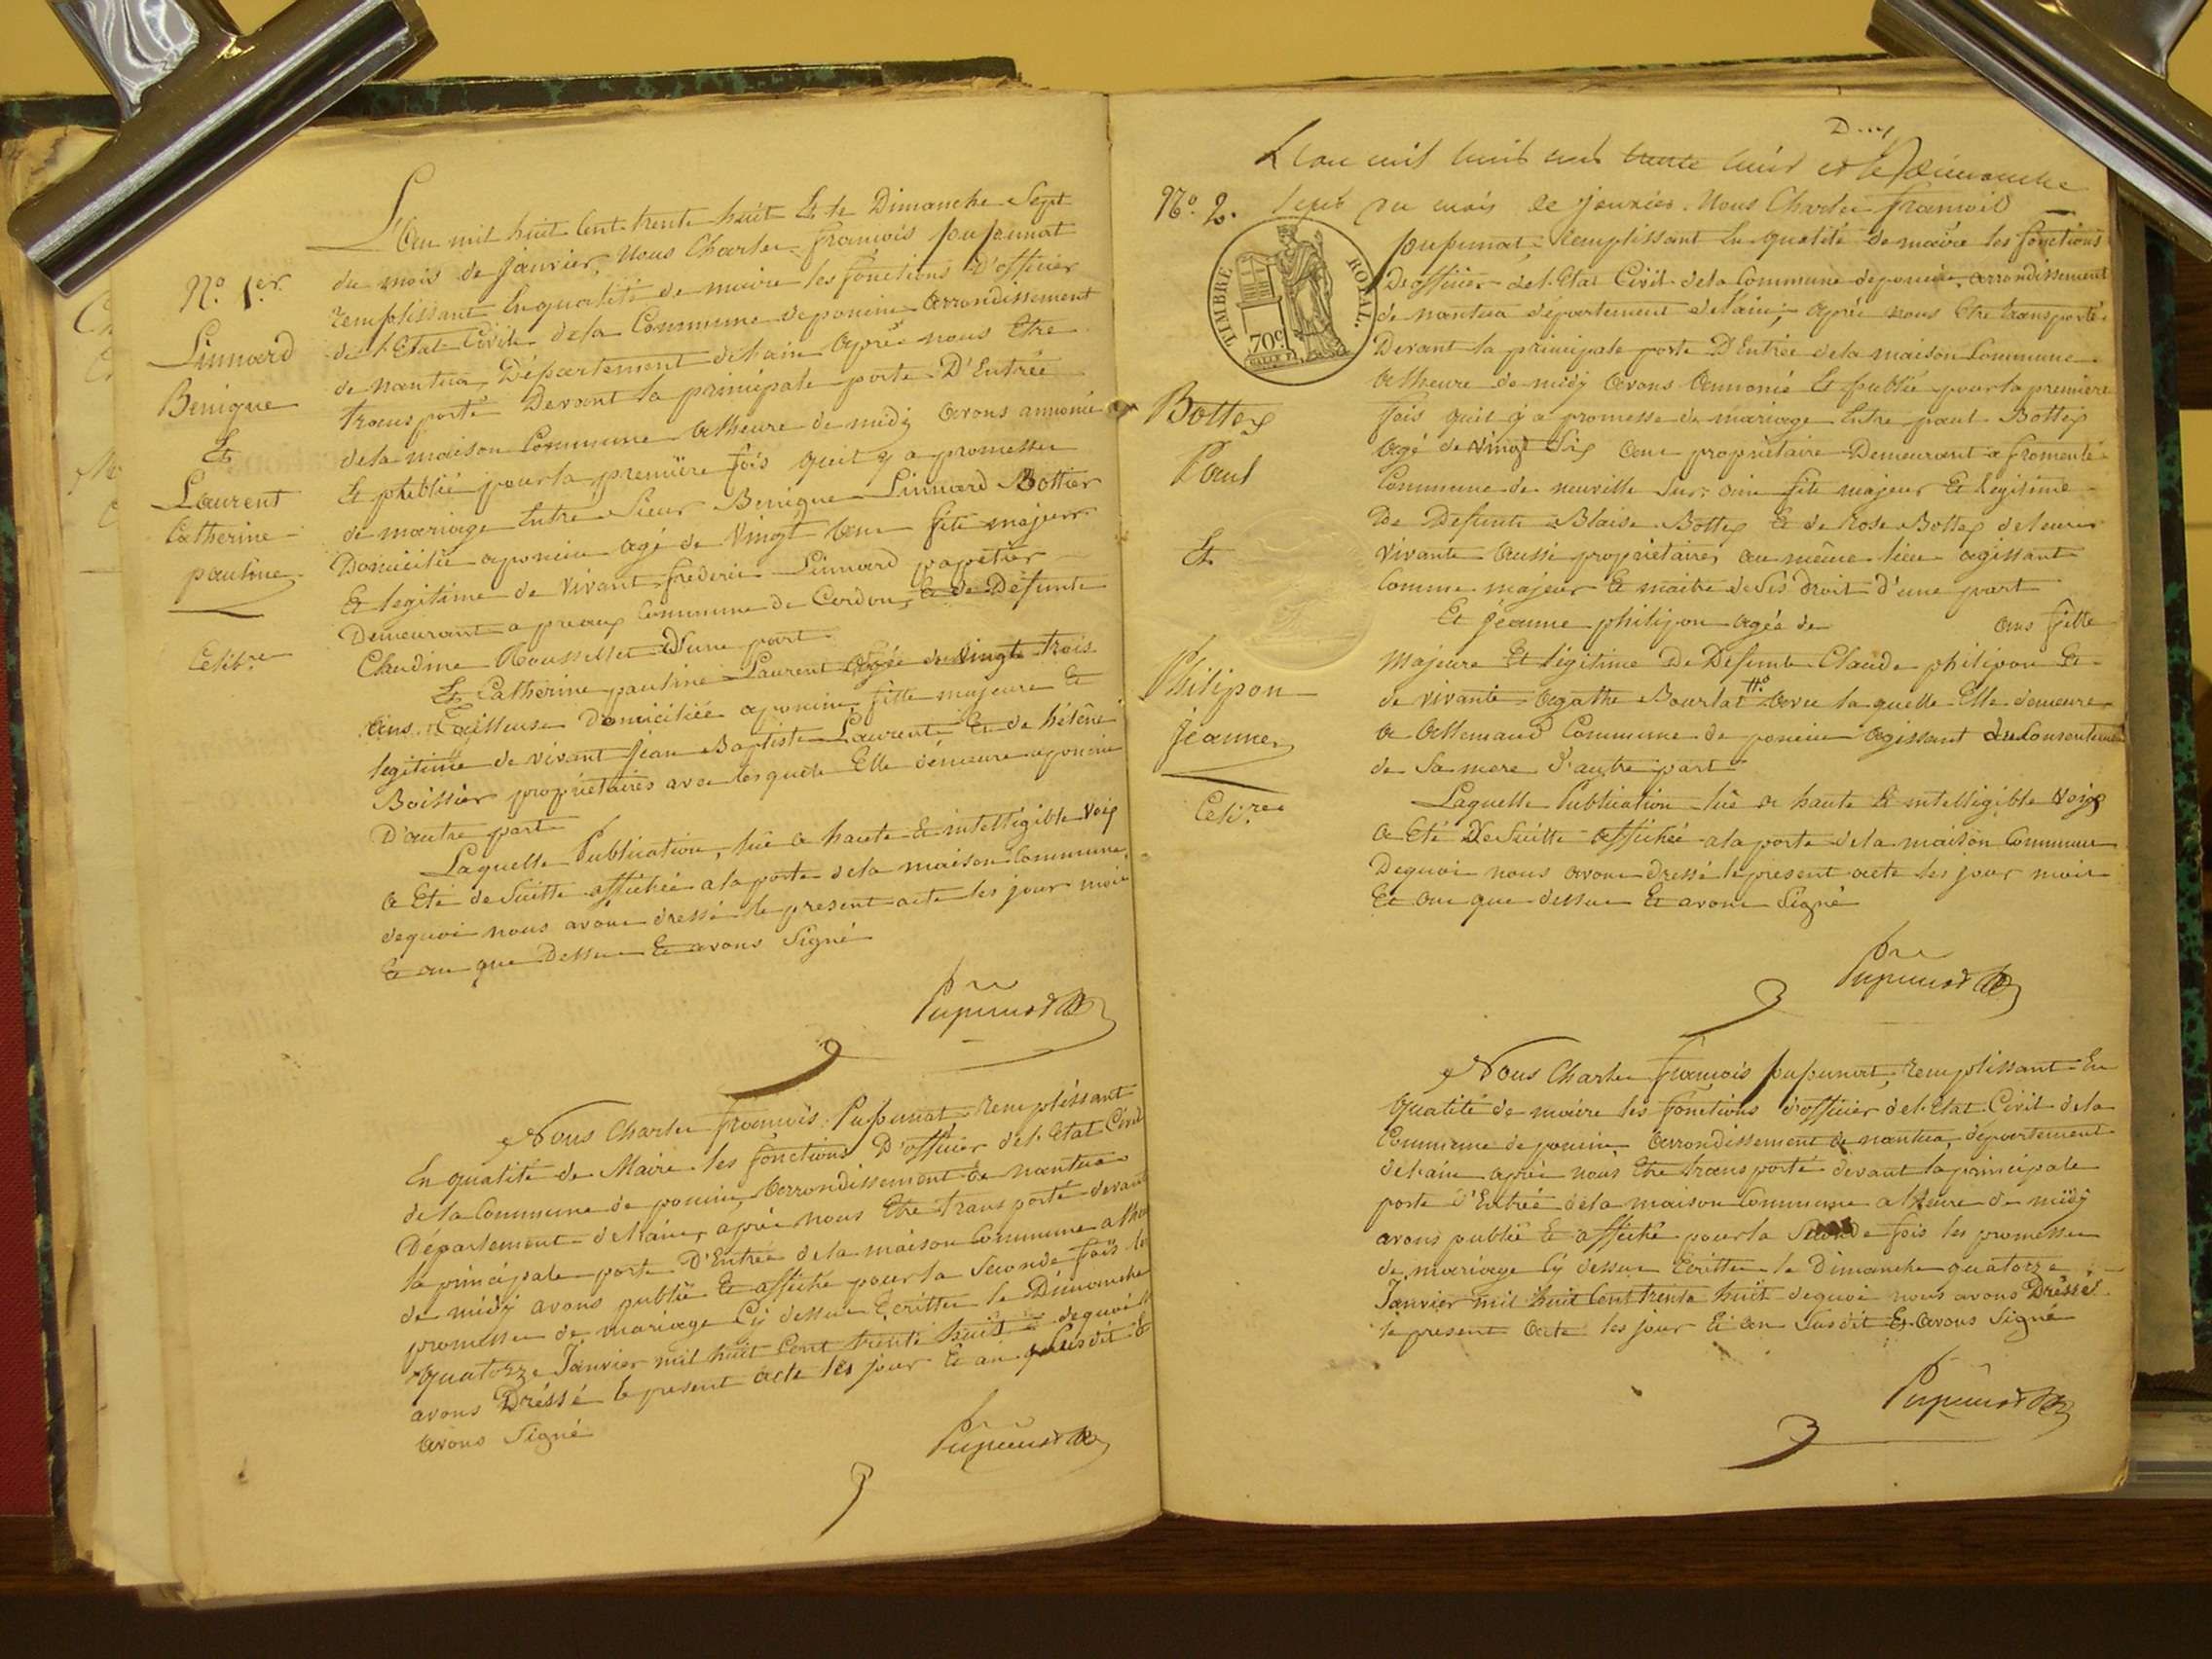 N.o 1.er
Linnard
Benigue
Et
Laurent
Catherine
pauline
Celib.re
L'an mil huit Cent trente huit Et le Dimanche Sept
du mois de Janvier, Nous Charles françois pupunat
remplissant En qualité de maire les fonctions D'officier
de l'Etat Civil de la Commune de poncin Arrondissement
de nantua, Département de l'ain Après nous Etre
transporté Devant la principale porte D'Entrée
de la maison Commune a l'heure de midy avons annoncé
Et publié pour la première fois qu'il y a promesses
de mariage Entre Sieur Benigue Linnard Bottier
Domicilié a poncin agé de Vingt ans fils majeur
Et legitime de vivant frederic Linnard papetier
Demeurant a preaux Commune de Cerdon, Et de Défunte
Claudine Rousselles D'une part.
Et Catherine pauline Laurent Agée de Vingt trois
ans Tailleuse Domiciliée a poncin, fille majeure Et
legitime de vivant Jean Baptiste Laurent Et de hélène
Boissier propriétaires avec lesquels Elle démeure a poncin
D'autre part
Laquelle Publication, lüe a haute Et intelligible Voix
a Eté de Suitte affichée a la porte de la maison Commune,
de quoi nous avons dressé le present acte les jour mois
Et an que Dessus Et avons Signé
Pupunat
Nous Charles françois Pupunat remplissant
En qualité de Maire les fonctions D'officier de l'Etat Civil
de la Commune de poncin, Arrondissement de nantua
Département de l'ain, après nous Etre transporté devant
la principale porte D'Entrée de la maison Commune a l'heure
de midy avons publié Et affiché pour la Seconde fois les
promesses de mariage Cy dessus Ecrittes le Dimanche
quatorze Janvier mil huit Cent trente huit de quoi
avons Dréssé le present acte les jour Et an susdit Et
avons Signé
Pupunat
L'an mil huit cent trente huit et le Dimanche
N.o 2. Sept du mois de Janvier. Nous Charles françois
TIMBRE ROYAL.
70c
Bottex
Paul
Et
Philipon
Jeanne
Celi.res
pupunat, remplissant En qualité de maire les fonctions
D'officier de l'Etat Civil de la Commune de poncin, arrondissement
de nantua département de l'ain, après nous Etre transporté
Devant la principale porte D'Entrée de la maison Commune
a l'heure de midy avons Annoncé Et publié pour la première
fois qu'il y a promesse de mariage Entre paul Bottex
agé de Vingt Six ans propriétaire Demeurant a fromente
Commune de neuville Sur ain fils majeur Et legitime
De Défunts Blaise Bottex Et de Rose Bottex de leurs
vivants Aussi propriétaires au même lieu agissant
Comme majeur Et maitre de Ses droit d'une part
Et Jeanne philipon agée de ans fille
majeure Et légitime De Défunt Claude philipon Et
de vivante Agathe Bourlat avec laquelle Elle demeure
a Allemand Commune de poncin agissant du Consentement
de Sa mere d'autre part
Laquelle Publication lüe a haute Et intelligible Voix
a Eté De Suitte affichée a la porte de la maison Commune
De quoi nous avons dressé le present acte les jour mois
Et an que dessus Et avons Signé
Pupunat
Nous Charles françois pupunat, remplissant En
qualité de maire les fonctions d'officier de l'Etat Civil de la
Commune de poncin Arrondissement de nantua, département
de l'ain après nous Etre transporté devant la principale
porte d'Entrée de la maison Commune a l'heure de midy
avons publié Et affiché pour la Seconde fois les promesses
de mariage Cy dessus Ecrittes le Dimanche quatorze
Janvier mil huit Cent trente huit de quoi nous avons Dréssé
le present Acte les jour Et an Susdit Et avons Signé
Pupunat